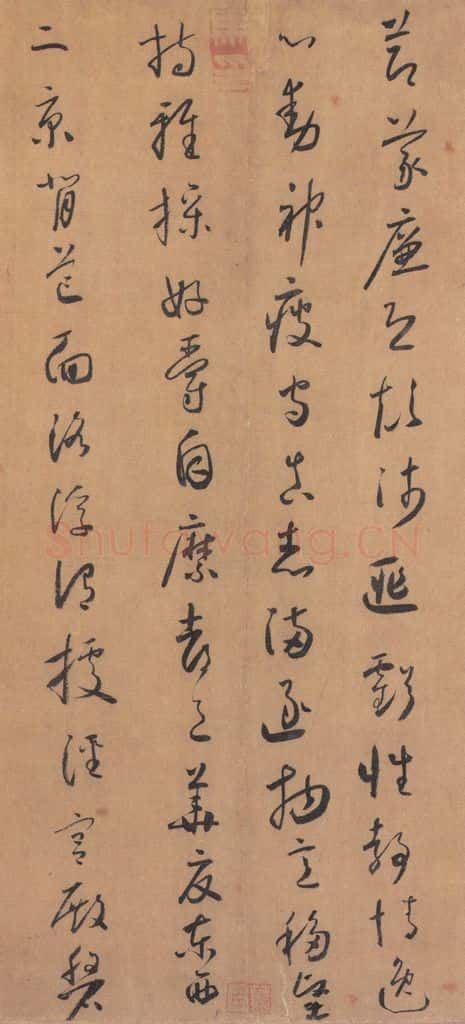 節義廉退顛沛匪虧性靜情逸
心動神疲守真志滿逐物意移堅
持雅操好爵自縻都邑華夏東西
二京背邙面洛浮渭據涇宮殿磐
Shufawang.CN